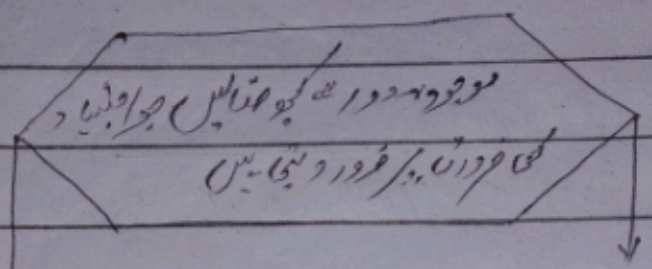 موجودہ دور سے کچھ مثالیں جو اجتہاد
کی ضرورت پر زور دیتی ہیں